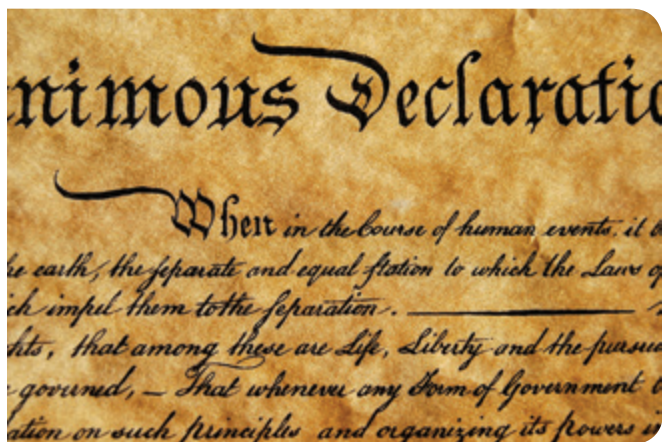 nimous Declaratio
When in the Course of human events, it b
he earth, the separate and equal station to which the Laws of
ch impel them to the separation.
hts, that among these are Life, Liberty and the pursu
governed, — That whenever any Form of Government b
ation on such principles and organizing its powers in